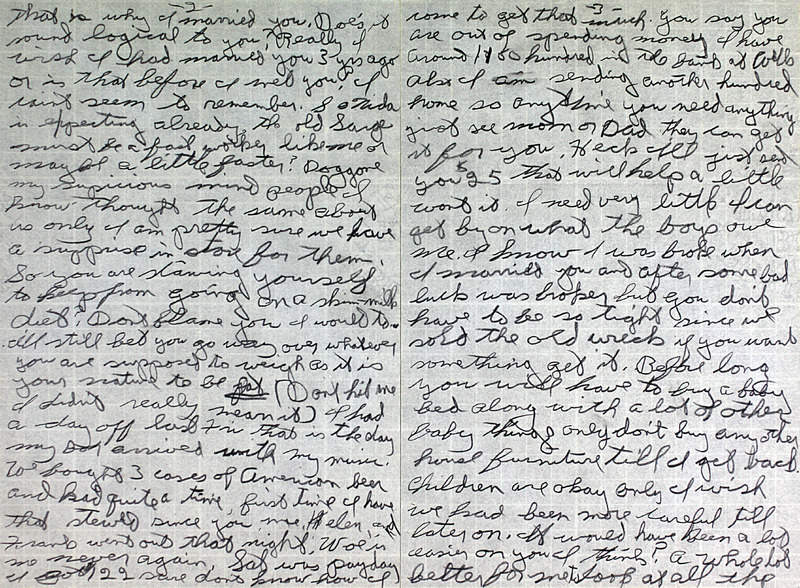 -2-
that is why I married you. Does it
sound logical to you? Really I
wish I had married you 3 yrs ago
or is that before I met you? I
cant seem to remember. So
is expecting already, the old Sarge
must be a fast worker like me or
may be a little faster? Doggone
my supicious mind people I
know thought the same about
us only I am pretty sure we have
a supprise in store for them.
So you are starving yourself
to keep from going on a skim milk
diet? Dont blame you I would to.
Ill still bet you go way over whatever
you are supposed to weigh as it is
your nature to be fat (Dont hit me
I didnt really mean it) I had
a day off last Fri that is the day
my Dad arrived with my music.
We bought 3 cases of American beer
and had quite a time, first time I have
that stewed since you me, Helen, and
Frank went out that night. Woe is
me never again. Sat was payday
I got 122 sure dont know how I
-3-
come to get that much. You say you
are out of spending money I have
around hundred in the bank at
also I am sending another hundred
home so anytime you need anything
just see mom or Dad they can get
it for you. Heck Ill just send
you $25 that will help a little
wont it. I need very little I can
get by on what the boys owe
me. I know I was broke when
I married you and after some bad
luck was broker but you dont
have to be so tight since we
sold the old wreck if you want
something get it. Before long
you will have to buy a baby
bed along with a lot of other
baby things only dont buy any other
house furniture till I get back.
Children are okay only I wish
we had been more careful till
later on. It would have been a lot
easier on you I think? A whole lot
better for me too